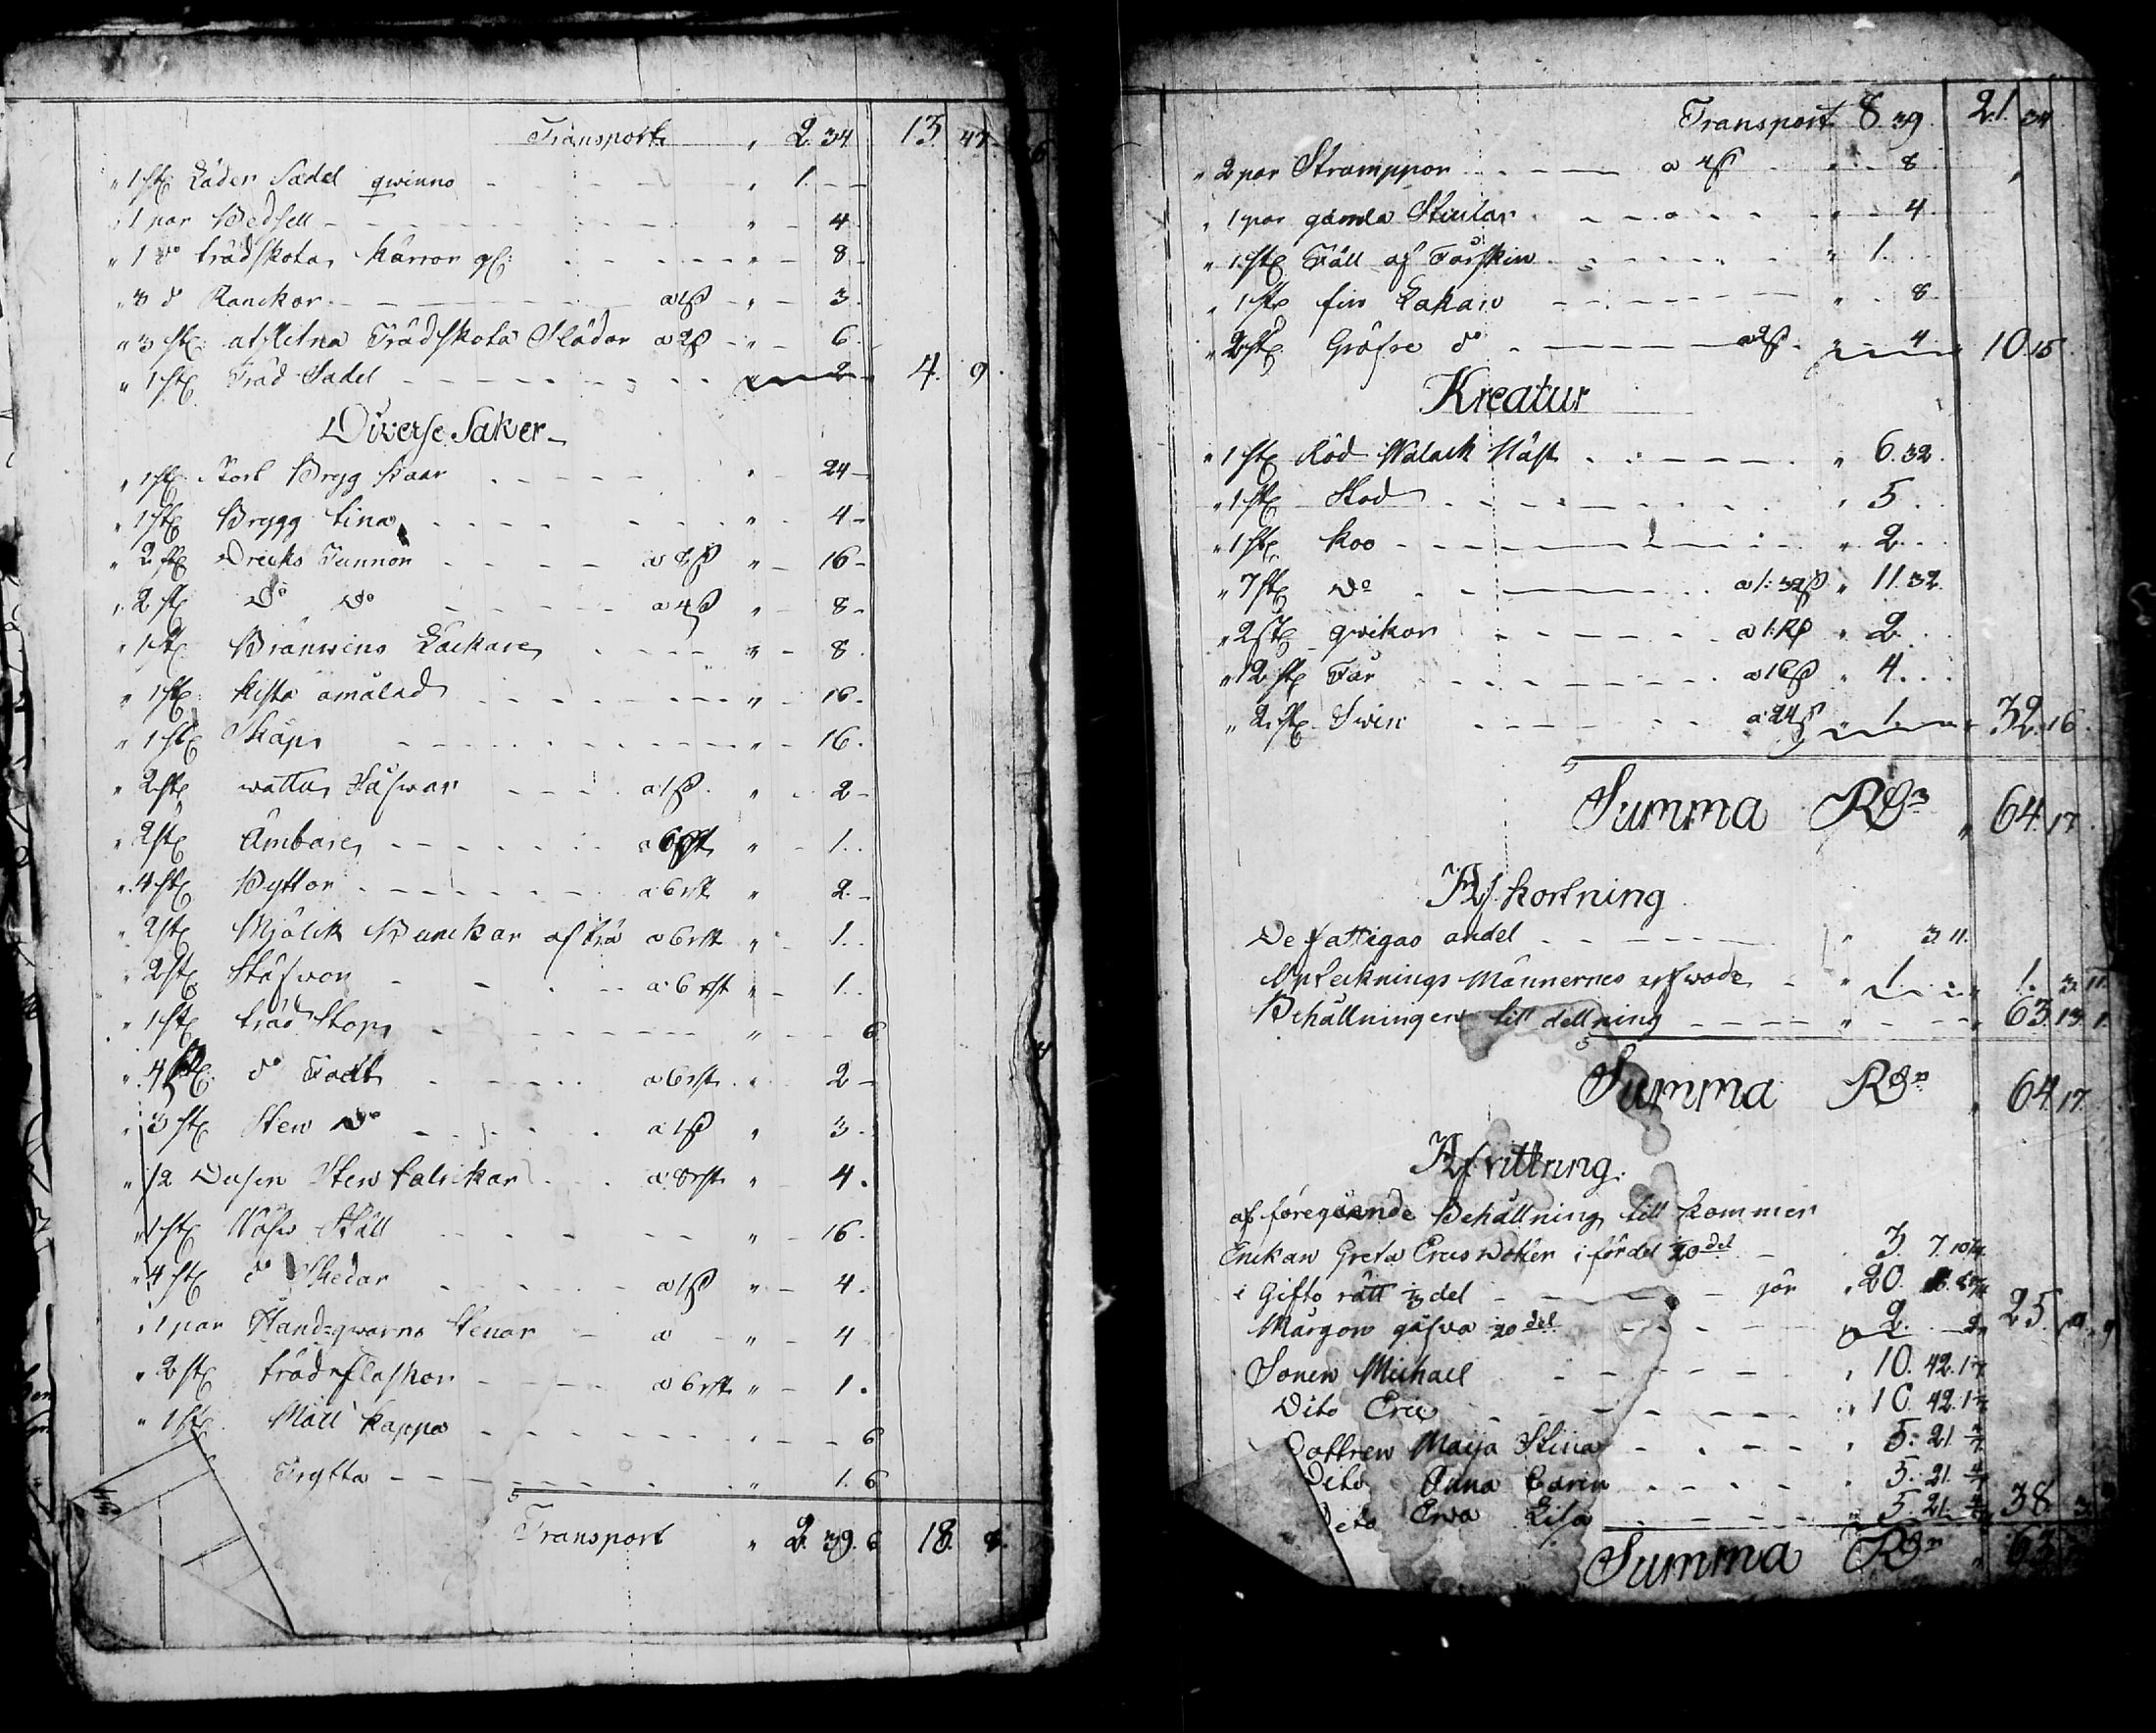 Transport " 2. 34 13 47
" 1 st. Läder Sadel qwinns " 1. –
" 1 par Bedsell " 4
" 1 do trädskota kärror " 8
" 3 do Ranckor a 1ß " 3
" 3 st. atsletna Trädskota Slädar a 2ß " 6
" 1 st. Träd Sadel 2 4. 9
Diverse Saker
" 1 st. Stort Brygg kaar " 24
" 1 st. Brygg tina " 4
" 2 st. Dricks Tunnor a 8ß " 16
" 2 st. Do Do a 4ß " 8
" 1 st. Bränwins Lackare " 8
" 1 st. kista omålad " 16
" 1 st. Skåp " 16
" 2 st. wattu Såswar a 1ß " 2
" 2 st. Ämbare a 6 rst " 1
" 4 st. Byttor a 6 rst " 2
" 2 st. Mjölck Bunckar af trä a 6 rst " 1
" 2 st. Stäfwor a 6 rst " 1
" 1 st. träd Stop " 6
" 4 st. do Fadt a 6 rst " 2
" 3 st. Sten Do a 1ß " 3
" 1/2 Dusin Stentalrickar a 8 rst " 4
" 1 st. Wäfw Ställ " 16
" 4 st. do Skedar a 1ß " 4
" 1 par Handqwarns Stenar a " 4
" 2 st. trädflaskor a 6 rst " 1
" 1 st. Mått kappa 6
Trytta " 1. 6
Transport " 2. 39. 6 18. 8
Transport 8. 39 21. 34
" 2 par Strumppor a 4ß " 8
" 1 par gamla Stiwlar " 4
" 1 st. Fäll af Fårskin " 1
" 1 st. fin Lakan " 8
" 2 st. Gröfre do a 2ß " 4 10 15
Kreatur
" 1 st. Röd Walack Häst " 6. 32
" 1 st. Stod " 5
" 1 st. koo " 2
" 7 st. Do a 1: 32ß " 11. 32
" 2 st. qwikor a 1: Rd " 2
" 12 st. Får a 16ß " 4
" 2 st. Swin a 24ß " 1 32. 16
Summa Rdr " 64. 17
Afkortning
De fattigas andel " 3 11
Uptecknings Männernes arfwode " 1 1. 3 11
Behållningen till dellning " 63. 13 1
Summa Rdr " 64 17
Afvittring
af föregående Behållning till kommer
Enkan Greta Ersdotter i fördel 20 del 3. 7. 10
i Gifto rätt 1/3 del gör " 20.
Margon gåfva 20 del 2 25
Sonen Michael " 10. 42. 1
Dito Eric " 10 42. 1
Dottren Maija Stina " 5. 21
Dito Anna Carin " 5. 21
Dito Ewa Lisa " 5 21 38 3
Summa Rdr " 63